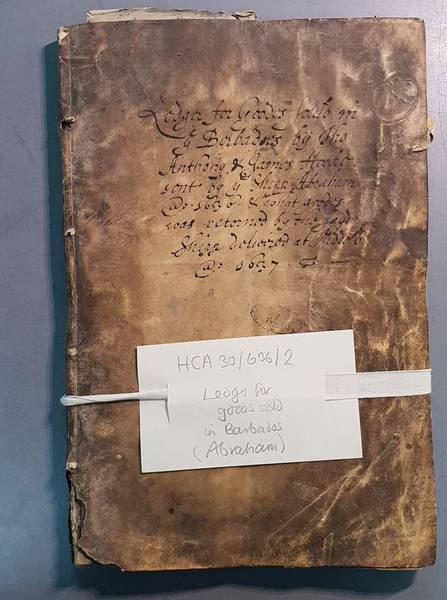 Ledger for Goods sould in
y Barbados by Tho
Anthony & James Hooke
sent by y Shipp Abraham
Ao 1636 & what goods
was returned by the said
Shipp delivered at
Ao 1637
HCA 30/636/2
Ledger for
goods sold
in Barbados
(Abraham)